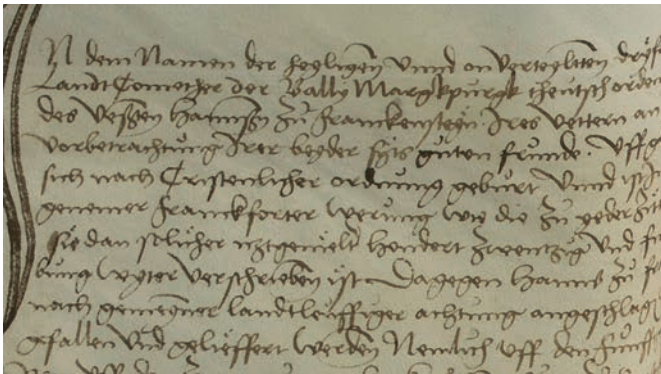 N dem Namen der heyligen vnnd onverteyltten dryf
Landt Comether der Bally Margkpurgk theutsch orden
des Veßten Hannßen zu Franckensteyn Ires vettern an
vorbetrachtung Irer beyder syts guten frunde. Vffg
sich nach Cristenlicher ordnung geburt Vnnd ist
genemer Franckforter werung wie die zu yeder zit
sie dan solicher hundert zwentzig vnd
bung wyter verschrieben ist Dagegen Hanns zu
nach gemeyner landtleuffiger achtung angeschlag
gfallen vnd gelieffert werden Nemlich vff den funff